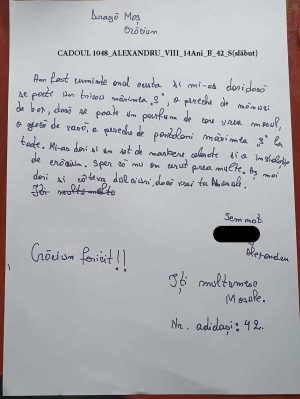 Dragă Moș
Crăciun
CADOUL 1048_ALEXANDRU_VIII_14Ani_B_42_S(slăbut)
Am fost cuminte anul acesta și mi-aș dori dacă
se poate un tricou mărimea "S", o pereche de mănuși
de box, dacă se poate un parfum de care vrea Moșul,
o geacă de vară, o pereche de pantaloni mărimea "S" la
toate. Mi-aș dori și un set de markere colorate și o
de crăciun. Sper că nu am cerut prea multe. Aș mai
dori și câteva dulciuri, dacă vrei tu Mosule.
Îți multu
Semnat
Alexandru
Crăciun fericit!!
Îți multumesc
Mosule.
Nr. adidași: 42.